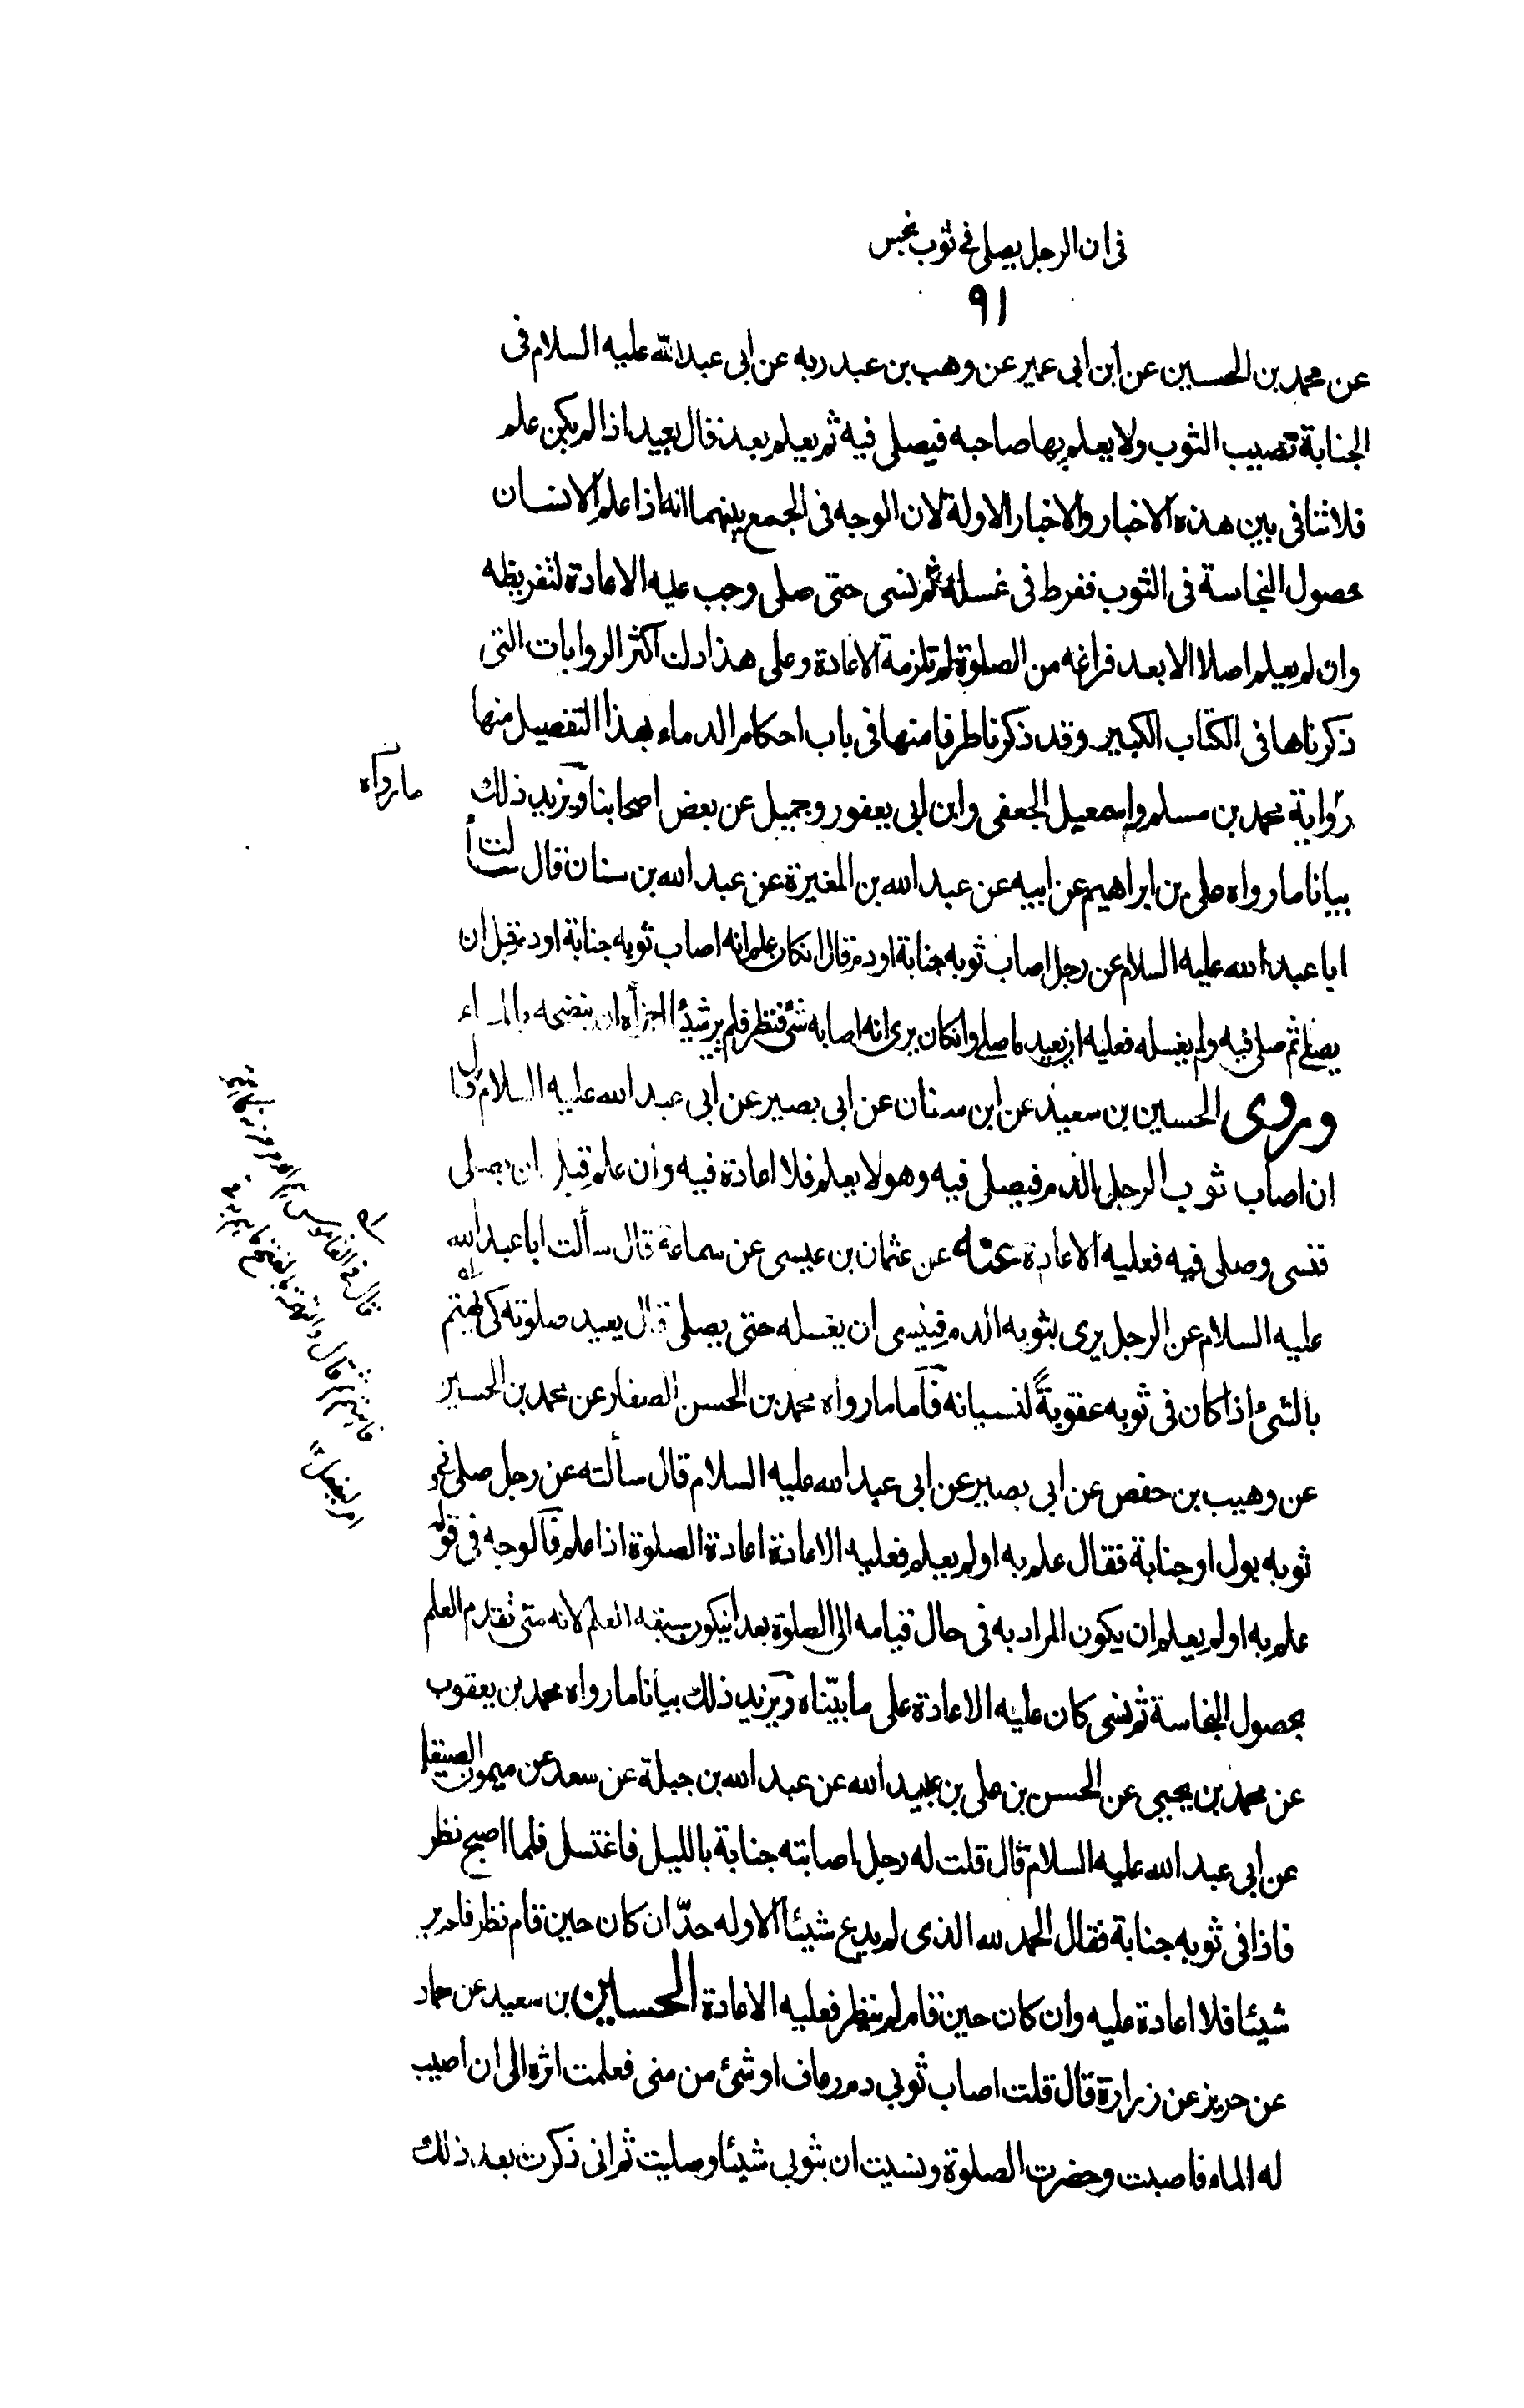 فى ان الرجل يصلى فى ثوب نجس
٩١
عن محمد بن الحسين عن ابن ابى عمير عن وهب بن عبد ربه عن ابى عبد الله عليه السلام فى
الجنابة تصيب الثوب ولا يعلم بها صاحبه فيصلى فيه ثم يعلم بعد قال يعيد اذا لم يكن علم
فلا تنافى بين هذه الاخبار والاخبار الاولة لان الوجه فى الجمع بينهما انه اذا علم الانسان
حصول النجاسة فى الثوب ففرط فى غسله ثم نسى حتى صلى وجب عليه الاعادة لتفريطه
وان لم يعلم اصلا الا بعد فراغه من الصلوة لم تلزمه الاعادة وعلى هذا دلت اكثر الروايات التى
ذكرناها فى الكتاب الكبير وقد ذكرنا طرفا منها فى باب احكام الدماء بهذا التفصيل منها
رواية محمد بن مسلم واسمعيل الجعفى وابن ابى يعفور وجميل عن بعض اصحابنا ويزيد ذلك
ما رواه
بيانا ما رواه على بن ابراهيم عن ابيه عن عبد الله بن المغيرة عن عبد الله بن سنان قال سألت
ابا عبد الله عليه السلام عن رجل اصاب ثوبه جنابة او دم قال ان كان علم انه اصاب ثوبه جنابة او دم قبل ان
يصلى ثم صلى فيه ولم يغسله فعليه ان يعيد ما صلى وان كان يرى انه اصابه شئ فنظر فلم ير شيئا اجزأه ان ينضحه بالماء
وروى الحسين بن سعيد عن ابن سنان عن ابى بصير عن ابى عبد الله عليه السلام قال
ان اصاب ثوب الرجل الدم فيصلى فيه وهو لا يعلم فلا اعادة فيه وان علم قبل ان يصلى
فنسى وصلى فيه فعليه الاعادة عنه عن عثمان بن عيسى عن سماعة قال سألت ابا عبد الله
عليه السلام عن الرجل يرى بثوبه الدم فينسى ان يغسله حتى يصلى قال يعيد صلوته كى يهتم
بالشئ اذا كان فى ثوبه عقوبةً لنسيانه فاما ما رواه محمد بن الحسن الصفار عن محمد بن الحسين
عن وهيب بن حفص عن ابى بصير عن ابى عبد الله عليه السلام قال سألته عن رجل صلى فى
ثوبه بول او جنابة فقال علم به او لم يعلم فعليه الاعادة اعادة الصلوة اذا علم فالوجه فى قوله
علم به او لم يعلم ان يكون المراد به فى حال قيامه الى الصلوة بعد ان يكون سبقه العلم لانه متى تقدم العلم
بحصول النجاسة ثم نسى كان عليه الاعادة على ما بيّناه ويزيد ذلك بيانا ما رواه محمد بن يعقوب
عن محمد بن يحيى عن الحسن بن على بن عبيد الله عن عبد الله بن جبلة عن سعد عن ميمون الصيقل
عن ابى عبد الله عليه السلام قال قلت له رجل اصابته جنابة بالليل فاغتسل فلما اصبح نظر
فاذا فى ثوبه جنابة فقال الحمد لله الذى لم يدع شيئا الا وله حدّ ان كان حين قام نظر فلم ير
شيئا فلا اعادة عليه وان كان حين قام لم ينظر فعليه الاعادة الحسين بن سعيد عن حماد
عن حريز عن زرارة قال قلت اصاب ثوبى دم رعاف او شئ من منى فعلمت اثره الى ان اصيب
له الماء فاصبت وحضرت الصلوة ونسيت ان بثوبى شيئا وصليت ثم انى ذكرت بعد ذلك